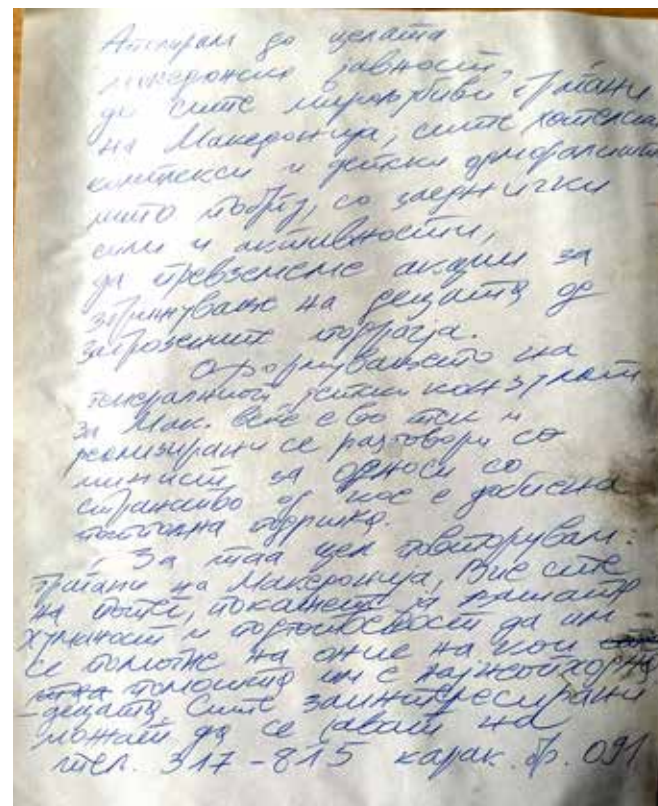 Апелирам до целата
македонска јавност,
до сите мирољубиви граѓани
на Македонија, сите хотелски
комплекси и детски одморалишта
што побрзо, со заеднички
сили и активности,
да превземеме акции за
згрижување на децата од
загрозените подрачја.
Оформувањето на
генералниот детски конзулат
за Мак. веќе е во тек и
реализирани се разговори со
минист. за односи со
странство од кое е добиена
потполна подршка.
За таа цел повторувам.
Граѓани на Македонија, Вие сте
на потег, покажете ја вашата
хуманост и подготвеност да им
се помогне на оние на кои
помошта им е најнеопходна
- децата. Сите заинтересирани
можат да се јават на
тел. 317-815 карак. бр. 091